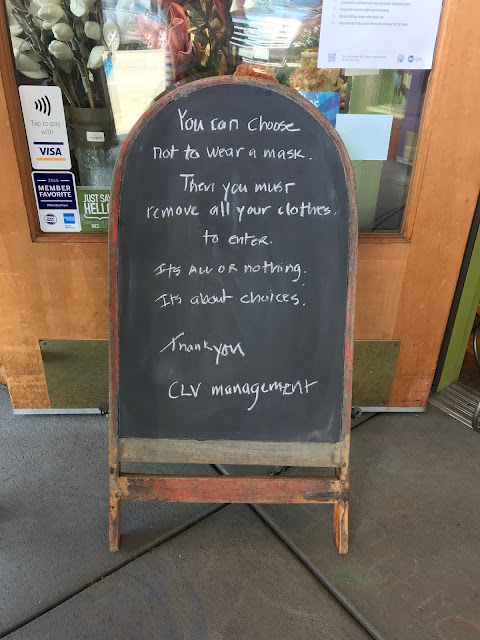 You can choose
not to wear a mask.
Then you must
remove all your clothes.
to enter.
It's ALL OR nothing.
It's about choices.
Thank you
CLV management
Tap to pay
with
VISA
MEMBER
FAVORITE
JUST SAY
HELLO